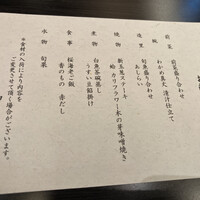 前菜　前菜盛り合わせ
椀　わかめ真丈　清汁仕立て
造里　旬魚盛り合わせ
あしらい
焼物　新玉葱ステーキ
鮑　カリフラワー木の芽味噌焼き
煮物　白魚茶碗蒸し
うすい豆餡掛け
食事　桜海老ご飯
香のもの　赤だし
水物　旬菓
＊食材の入荷により内容を
ご変更させて頂く場合がございます。